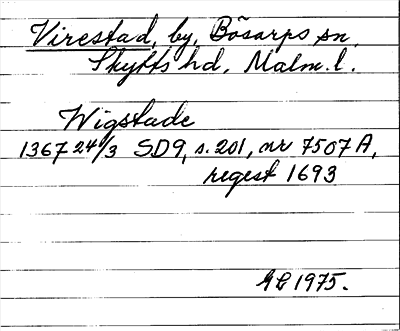 Virestad, by, Bösarps sn,
Skytts hd, Malm. l.
Wigstade
1367 24/3 SD9, s. 201, nr 7507 A,
regest 1693
1975.